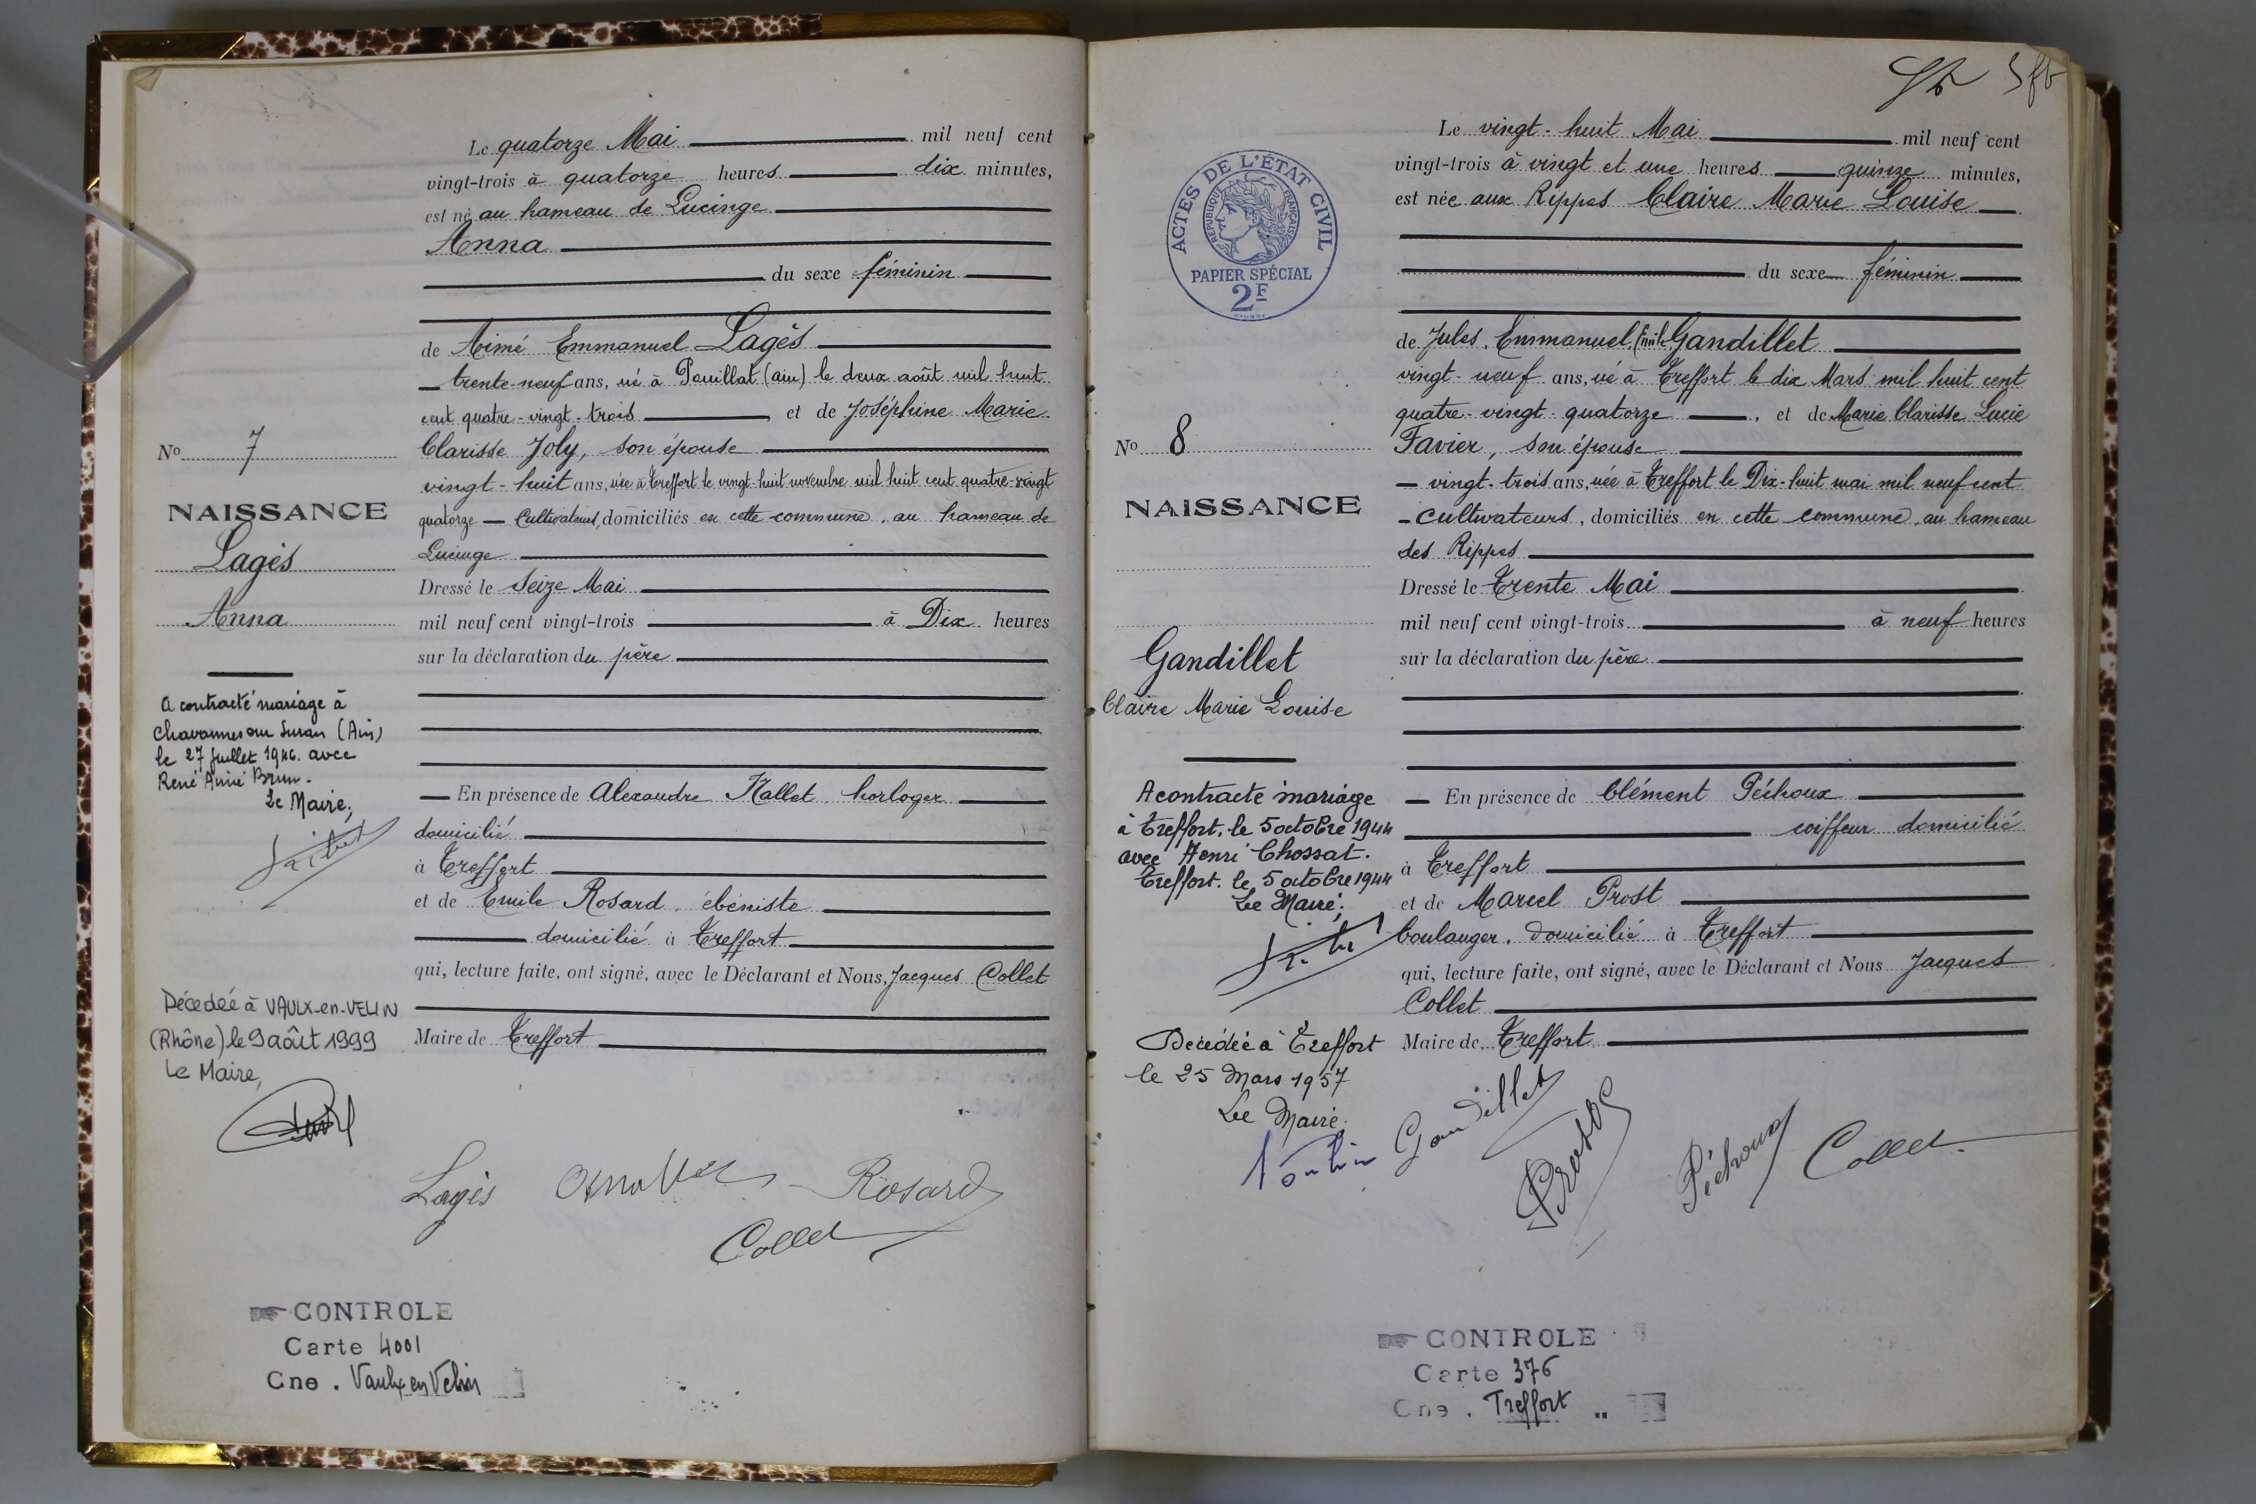 Le quatorze Mai mil neuf cent
vingt-trois à quatorze heures dix minutes,
est né au hameau de Lucinge
Anna
du sexe féminin
de Aimé Emmanuel Lagès
trente-neuf ans, né à Pouillat (ain) le deux août mil huit
cent quatre-vingt-trois et de Joséphine Marie
Clarisse Joly, son épouse
vingt-huit ans, née à Treffort le vingt-huit novembre mil huit cent quatre-vingt
quatorze — Cultivateurs, domiciliés en cette commune, au hameau de
Lucinge
Dressé le Seize Mai
mil neuf cent vingt-trois à Dix heures
sur la déclaration du père
— En présence de Alexandre Hallet horloger
domicilié
à Treffort
et de Emile Rosard, ébéniste
domicilié à Treffort
qui, lecture faite, ont signé, avec le Déclarant et Nous, Jacques Collet
Maire de Treffort
No 7
NAISSANCE
Lagès
Anna
A contracté mariage à
Chavannes sur Suran (Ain)
le 27 Juillet 1946. avec
René Aimé Brun.
Le Maire,
Décédée à VAULX-en-VELIN
(Rhône) le 9 août 1999
Le Maire,
Lagès
Rosard
Collet
CONTROLE
Carte 4001
Cne . Vaulx en Velin
ACTES DE L'ÉTAT CIVIL
RÉPUBLIQUE FRANÇAISE
PAPIER SPÉCIAL
2F
Le vingt-huit Mai mil neuf cent
vingt-trois à vingt et une heures quinze minutes,
est née aux Rippes Claire Marie Louise
du sexe féminin
de Jules, Emmanuel, Emile Gandillet
vingt-neuf ans, né à Treffort le dix Mars mil huit cent
quatre-vingt-quatorze , et de Marie Clarisse Lucie
Favier, son épouse
— vingt-trois ans, née à Treffort le Dix-huit mai mil neuf cent
- cultivateurs, domiciliés en cette commune, au hameau
des Rippes
Dressé le Trente Mai
mil neuf cent vingt-trois à neuf heures
sur la déclaration du père
— En présence de Clément Péchoux
coiffeur domicilié
à Treffort
et de Marcel Prost
boulanger, domicilié à Treffort
qui, lecture faite, ont signé, avec le Déclarant et Nous Jacques
Collet
Maire de Treffort
No 8
NAISSANCE
Gandillet
Claire Marie Louise
A contracté mariage
à Treffort, le 5 octobre 1944
avec Henri Chossat.
Treffort. le 5 octobre 1944
Le Maire,
Décédée à Treffort
le 25 Mars 1957
Le Maire.
Gandillet
Prost
Péchoux
Collet
CONTROLE
Carte 376
Cne . Treffort